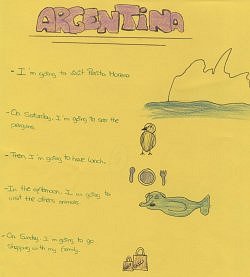 ARGENTINA
- I'm going to visit Perito Moreno
- On Saturday, I'm going to see the
penguins.
- Then, I'm going to have lunch.
- In the afternoon, I'm going to
visit the others animals.
- On Sunday, I'm going to go
shopping with my family.